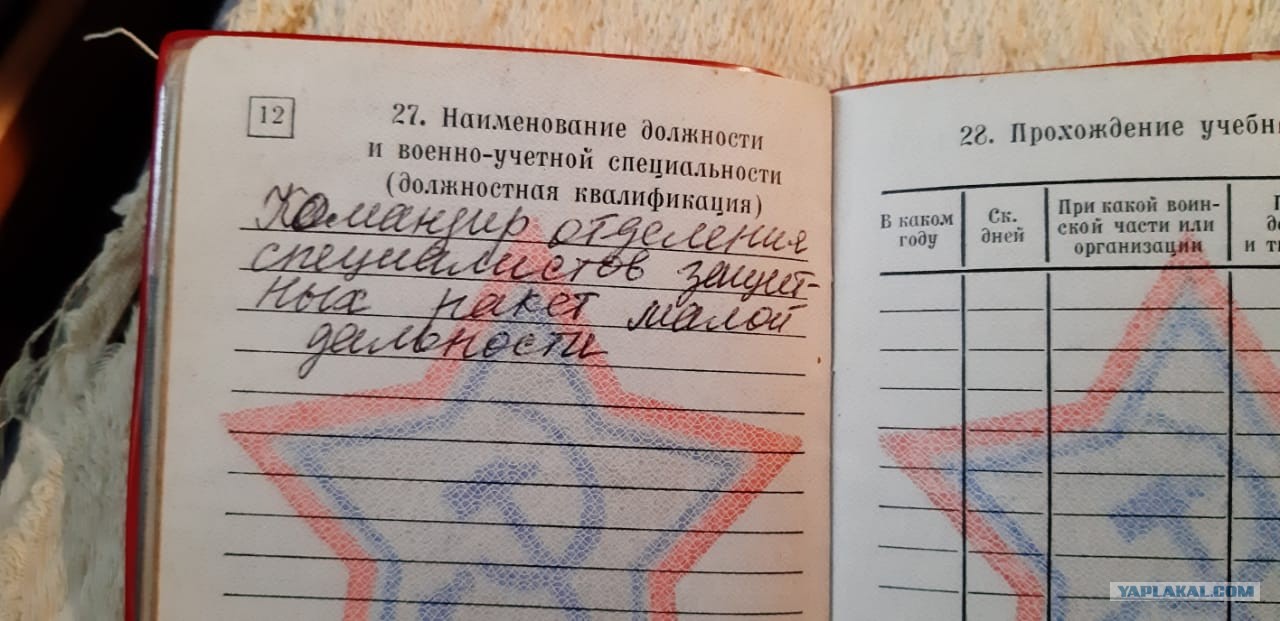 12
27. Наименование должности
и военно-учетной специальности
(должностная квалификация)
Командир отделения
специалистов зенит-
ных ракет малой
дальности
28. Прохождение учебн
В каком
году
Ск.
дней
При какой воин-
ской части или
организации
YAPLAKAL.COM